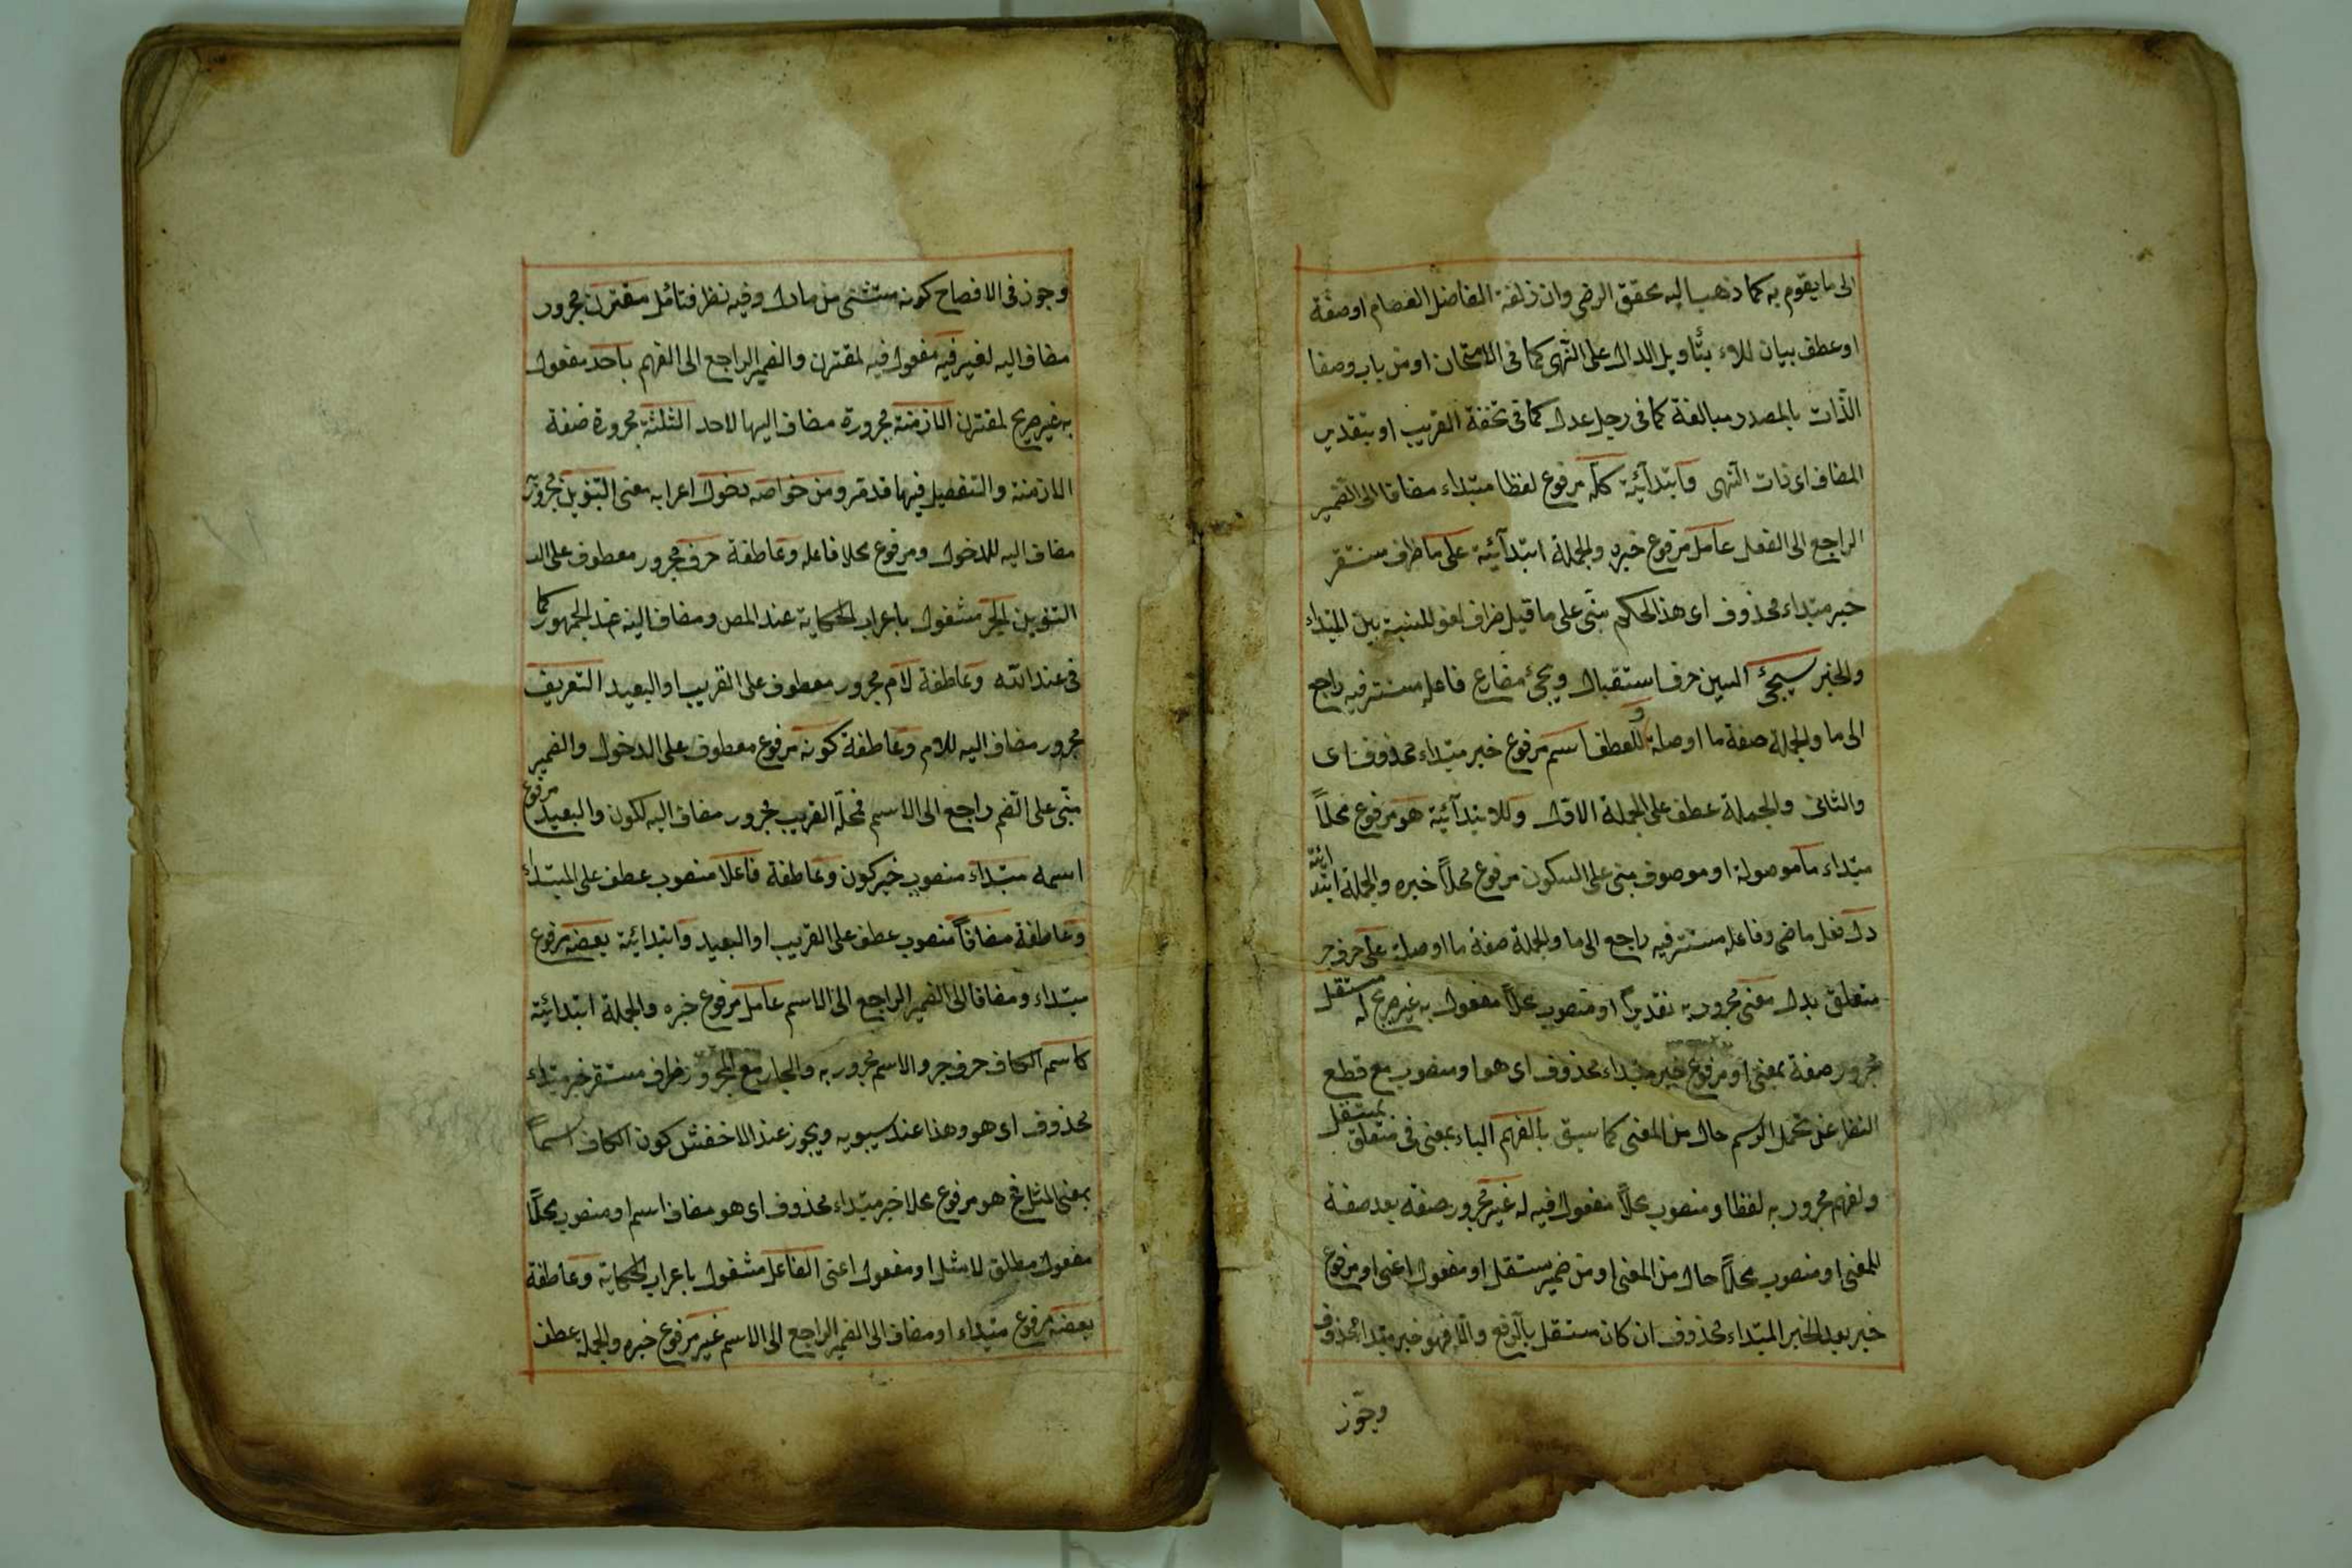 الى ما يقوم به كما ذهب اليه محقق الرضي وان زلفة الفاضل العصام او صفة
او عطف بيان للام بتأويل الدال على النهى كما فى الامتحان او من باب وصفا
الذات بالمصدر مبالغة كما فى رجل عدل كما فى تحفة القريب او بتقدير
المضاف اى ذات النهى وابتدآئية كله مرفوع لفظا مبتداء مضافا الى الضمير
الراجع الى الفعل عامل مرفوع خبره والجملة ابتدآئية على ما ظرف مستقر
خبر مبتداء محذوف اى هذا الحكم مبنى على ما قيل ظرف لغو للنسبة بين المبتداء
والخبر سيجئ السين حرف استقبال ويجئ مضارع فاعله مستتر فيه راجع
الى ما والجملة صفة ما او صلة و للعطف اسم مرفوع خبر مبتداء محذوف اى
والثانى والجملة عطف على الجملة الاول وللابتدآئية هو مرفوع محلاً
مبتداء ما موصولة او موصوف مبنى على السكون مرفوع محلاً خبره والجملة ابتدائية
دل فعل ماضى وفاعله مستتر فيه راجع الى ما والجملة صفة ما او صلة على حرف جر
متعلق بدل معنى مجرور به تقديراً او منصوب محلاً مفعول به غير صريح له مستقل
مجرور صفة بمعنى او مرفوع خبر مبتداء محذوف اى هو او منصوب مع قطع
النظر عن تحمل الرسم حال من المعنى كما سبق بالفهم الباء بمعنى فى متعلق بمستقل
ولفهم مجرور به لفظا ومنصوب محلاً مفعول فيه له غير مجرور صفة بعد صفة
للمعنى او منصوب محلاً حال من المعنى او من ضمير مستقل او مفعول اعنى او مرفوع
خبر بعد الخبر المبتداء محذوف ان كان مستقل بالرفع والا فهو خبر مبتداء محذوف
وجوز
وجوز فى الافصاح كونه مستثنى من ما دل وفيه نظر فتأمل مقترن مجرور
مضاف اليه لغير فيه مفعول فيه لمقترن والضمير الراجع الى الفهم باحد مفعول
به غير صريح لمقترن الازمنة مجرورة مضاف اليها لاحد الثلثة مجرورة صفة
الازمنة والتفصيل فيها قد مر ومن خواصه دخول اعرابه معنى التنوين مجرور
مضاف اليه للدخول ومرفوع محلا فاعله وعاطفة حرف مجرور معطوف على الت
التنوين الجر مشغول باعراب الحكاية عند المص ومضاف اليه عند الجمهور كما
فى عند الله وعاطفة لام مجرور معطوف على القريب او البعيد التعريف
مجرور مضاف اليه للام وعاطفة كونه مرفوع معطوف على الدخول والضمير
مبنى على الضم راجع الى الاسم فمحله القريب مجرور مضاف اليه لكون والبعيد مرفوع
اسمه مبتداء منصوب خبر كون وعاطفة فاعلا منصوب عطف على المبتداء
وعاطفة مضافاً منصوب عطف على القريب او البعيد وابتدائية بعضه مرفوع
مبتداء ومضافا الى الضمير الراجع الى الاسم عامل مرفوع خبره والجملة ابتدائية
كاسم الكاف حرف جر والاسم مجرور به والجار مع المجرور ظرف مستقر خبر مبتداء
محذوف اى هو وهذا عند سيبويه ويجوز عند الاخفش كون الكاف اسماً
بمعنى المثل هو مرفوع محلا خبر مبتداء محذوف اى هو مضاف اسم او منصوب محلاً
مفعول مطلق لامثل او مفعول اعنى الفاعل مشغول باعراب الحكاية وعاطفة
بعضه مرفوع مبتداء او مضاف الى الضمير الراجع الى الاسم غير مرفوع خبره والجملة عطف